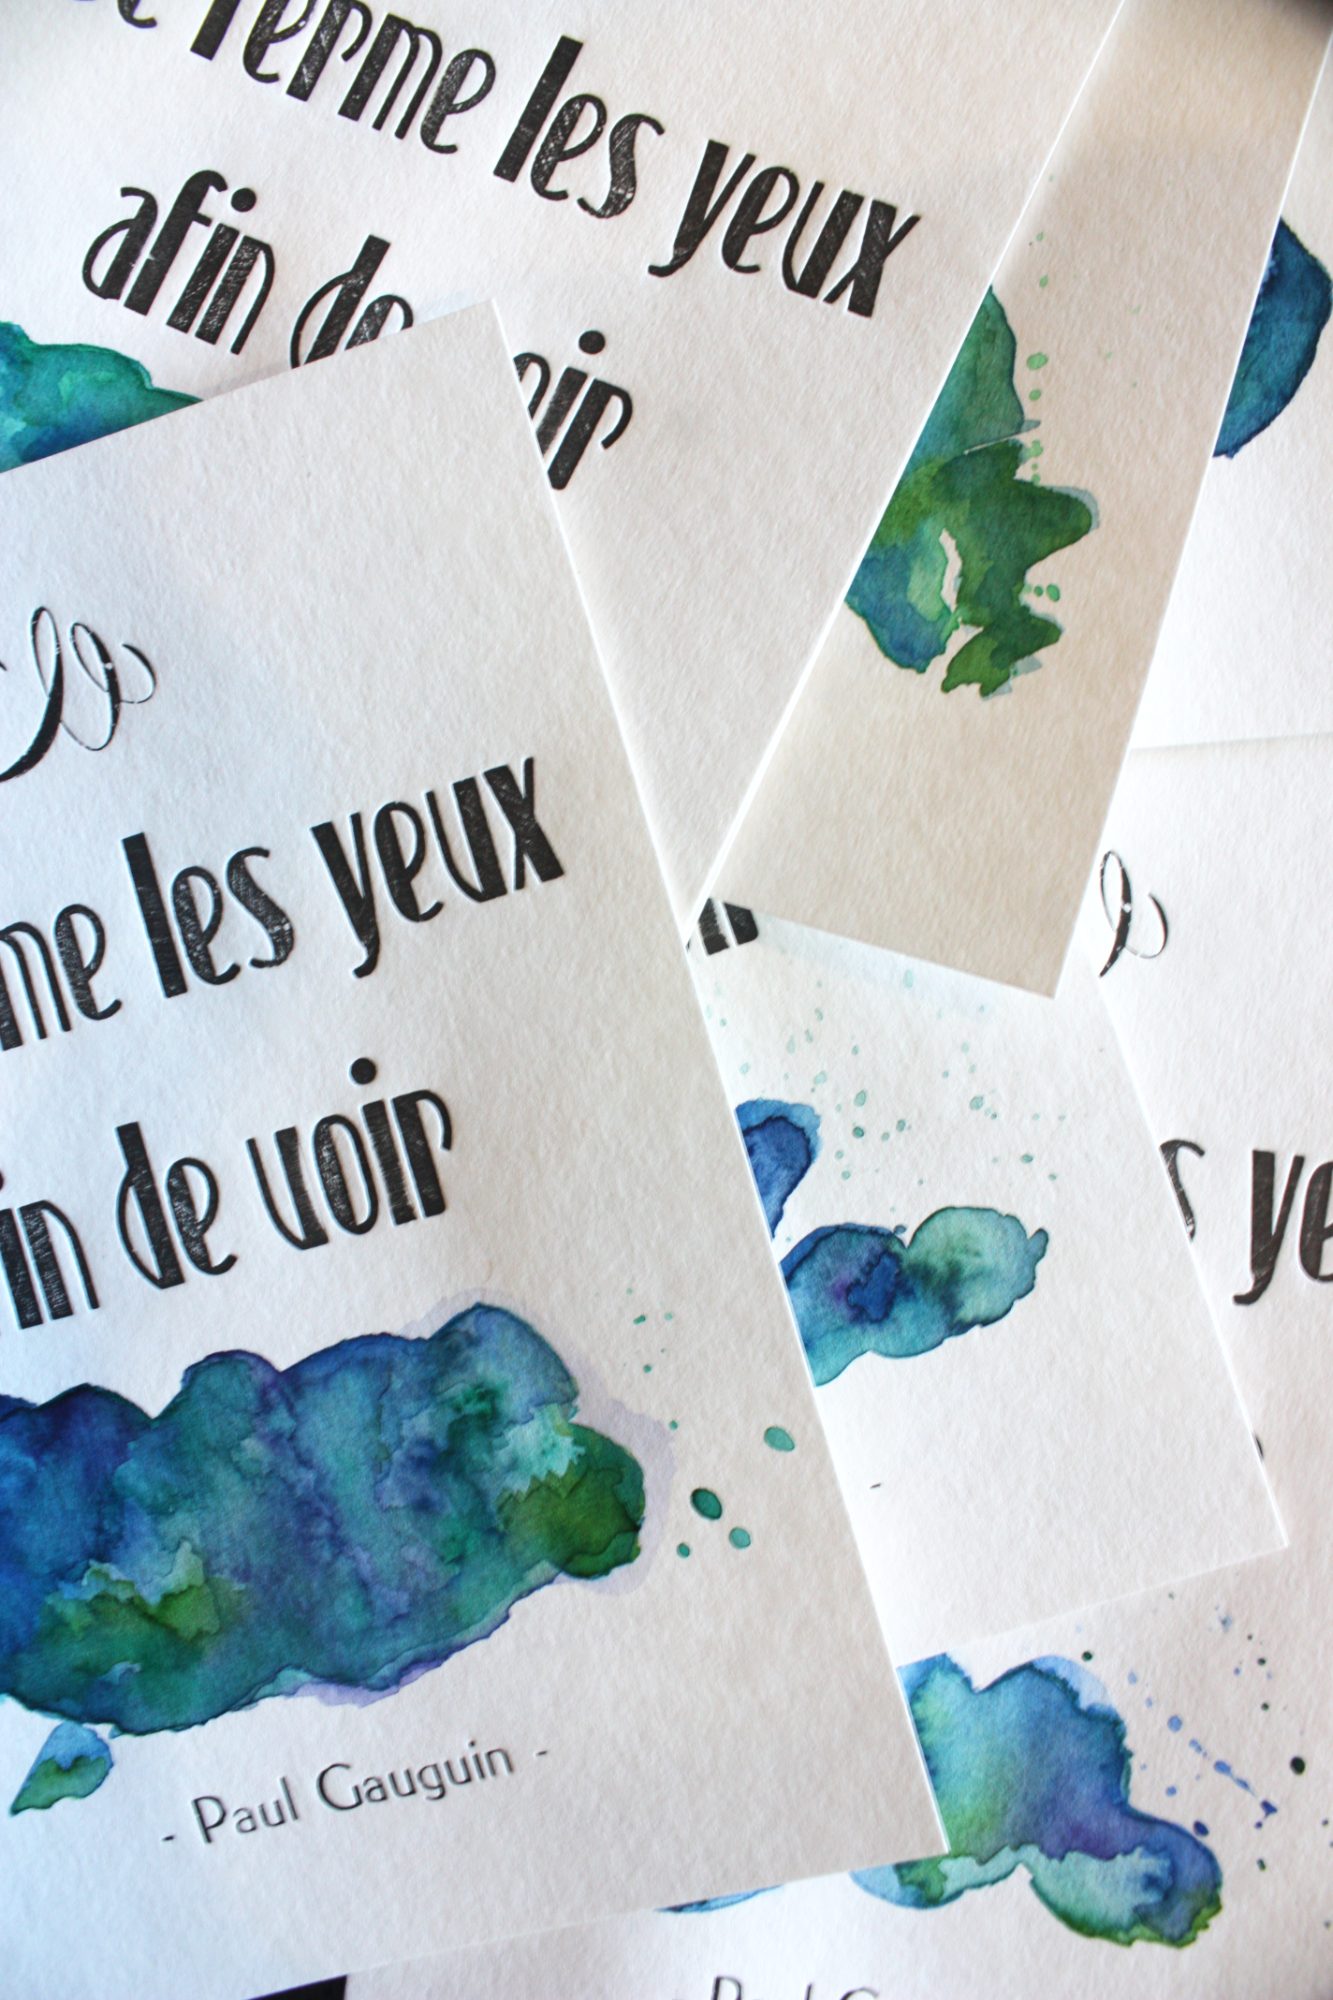 ferme les yeux
afin de oir
e
me les yeux
in de voir
- Paul Gauguin -
e
s ye
Paul G